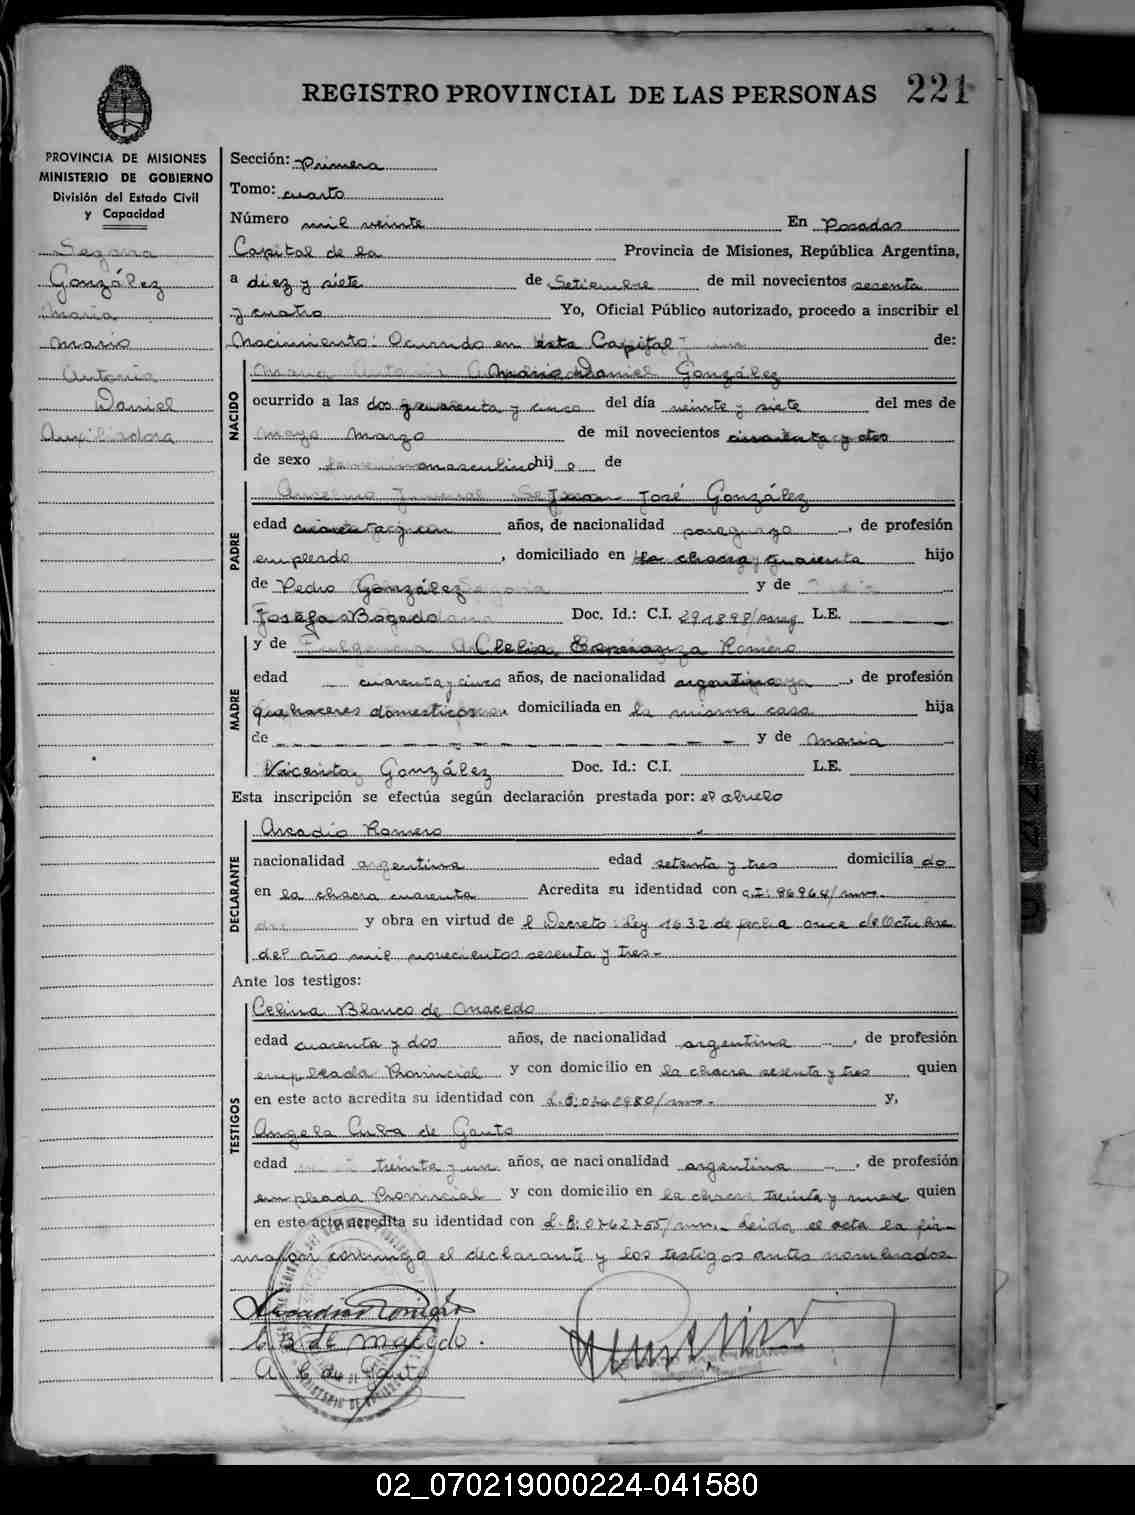 REGISTRO PROVINCIAL DE LAS PERSONAS 221
PROVINCIA DE MISIONES
MINISTERIO DE GOBIERNO
División del Estado Civil
y Capacidad
Segovia
González
Maria
Mario
Antonia
Daniel
Auxiliadora
Sección: Primera
Tomo: cuarto
Número mil veinte En Posadas
Capital de la Provincia de Misiones, República Argentina,
a diez y siete de Setiembre de mil novecientos sesenta
y cuatro Yo, Oficial Público autorizado, procedo a inscribir el
Nacimiento: Ocurrido en esta Capital de:
NACIDO
Mario Daniel González
ocurrido a las dos y cuarenta y cinco del día veinte y siete del mes de
marzo de mil novecientos cincuenta y ocho
de sexo masculino hij o de
PADRE
Juan José González
edad años, de nacionalidad paraguayo, de profesión
empleado, domiciliado en la chacra cuarenta hijo
de Pedro González y de
Josefa Bogado Doc. Id.: C.I. 291898/parag L.E.
MADRE
y de Clelia Romero
edad cuarenta y cinco años, de nacionalidad argentina, de profesión
quehaceres domesticos domiciliada en la misma casa hija
de y de Maria
Vicenta González Doc. Id.: C.I. L.E.
Esta inscripción se efectúa según declaración prestada por: el abuelo
DECLARANTE
Arcadio Romero
nacionalidad argentina edad setenta y tres domicilia do
en la chacra cuarenta Acredita su identidad con C.I: 86964/mnes.
y obra en virtud del Decreto: Ley 1632 de fecha once de Octubre
del año mil novecientos sesenta y tres.-
Ante los testigos:
TESTIGOS
Celina Blanco de Macedo
edad cuarenta y dos años, de nacionalidad argentina, de profesión
empleada Provincial y con domicilio en la chacra sesenta y tres quien
en este acto acredita su identidad con y,
Angela Cuba de Gauto
edad treinta y un años, de nacionalidad argentina, de profesión
empleada Provincial y con domicilio en la chacra treinta y nueve quien
en este acto acredita su identidad con Leida el acta la fir-
man conmigo el declarante y los testigos antes nombrados
Arcadio Romero
C B de macedo.
A C de Gauto
02_070219000224-041580